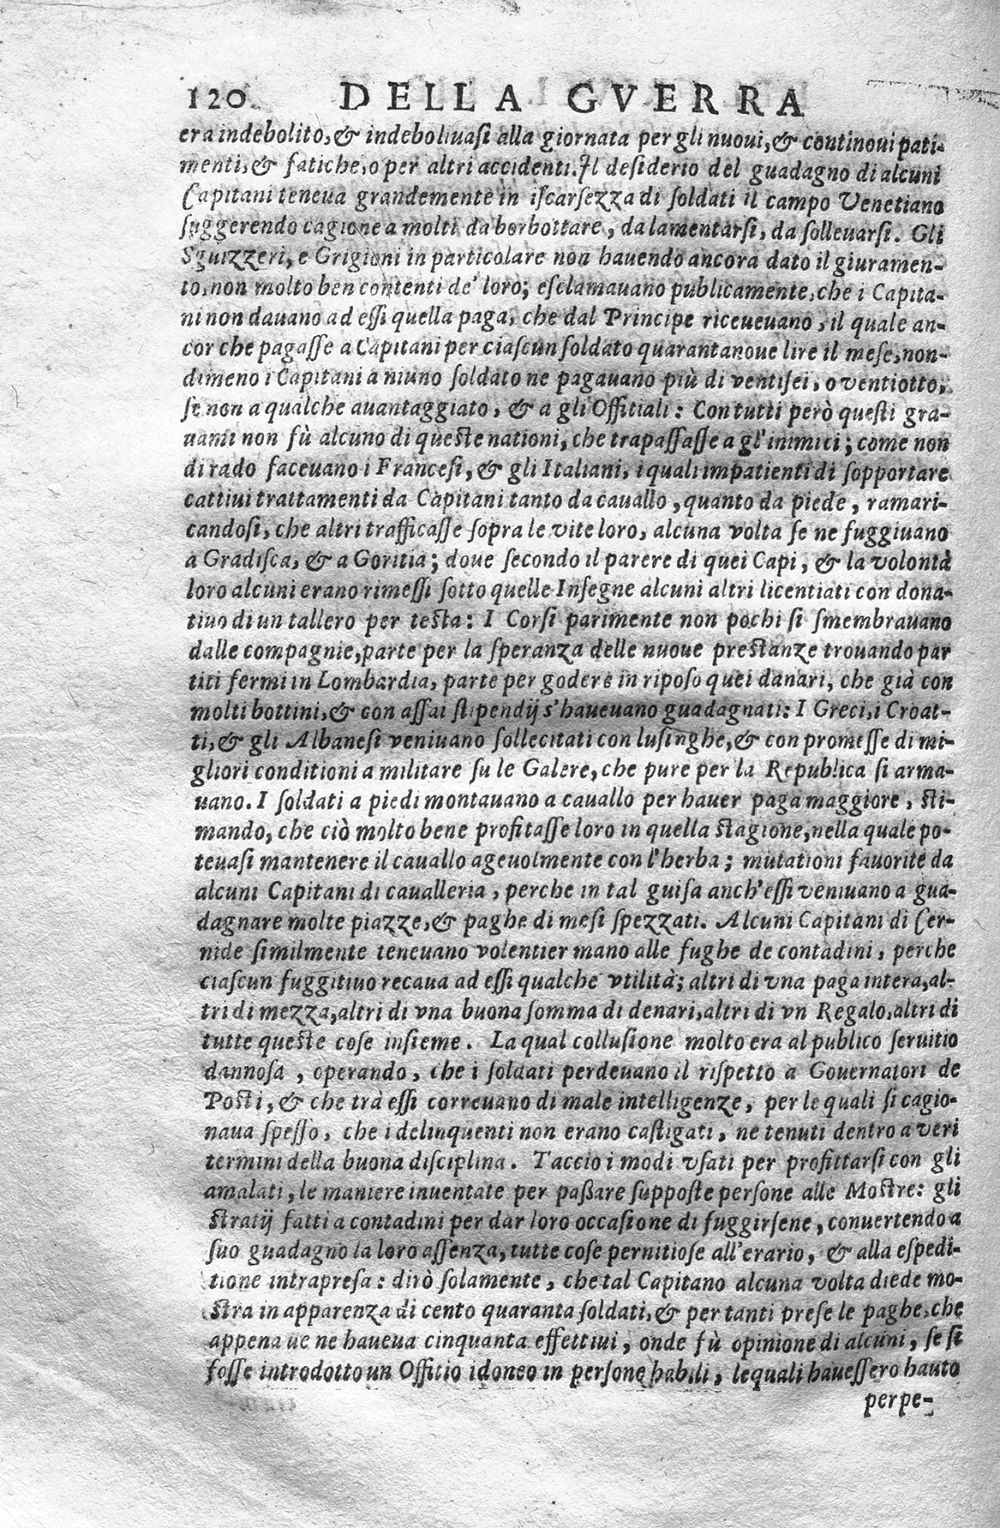 120. DELLA GVERRA
era indebolito, & indebolivasi alla giornata per gli nuovi, & continovi pati-
menti, & fatiche, o per altri accidenti. Il desiderio del guadagno di alcuni
Capitani teneva grandemente in iscarsezza di soldati il campo Venetiano
suggerendo cagione a molti da borbottare, da lamentarsi, da sollevarsi. Gli
Sguizzeri, e Grigioni in particolare non havendo ancora dato il giuramen-
to, non molto ben contenti de' loro; esclamavano publicamente, che i Capita-
ni non davano ad essi quella paga, che dal Principe ricevevano, il quale an-
cor che pagasse a Capitani per ciascun soldato quarantanove lire il mese, non-
dimeno i Capitani a niuno soldato ne pagavano più di ventisei, o ventiotto,
se non a qualche avantaggiato, & a gli Offitiali: Con tutti però questi gra-
vami non fù alcuno di queste nationi, che trapassasse a gl'inimici; come non
di rado facevano i Francesi, & gli Italiani, i quali impatienti di sopportare
cattivi trattamenti da Capitani tanto da cavallo, quanto da piede, ramari-
candosi, che altri trafficasse sopra le vite loro, alcuna volta se ne fuggivano
a Gradisca, & a Goritia; dove secondo il parere di quei Capi, & la volontà
loro alcuni erano rimessi sotto quelle Insegne alcuni altri licentiati con dona-
tivo di un tallero per testa: I Corsi parimente non pochi si smembravano
dalle compagnie, parte per la speranza delle nuove prestanze trovando par
titi fermi in Lombardia, parte per godere in riposo quei danari, che già con
molti bottini, & con assai stipendij s'havevano guadagnati: I Greci, i Croat-
ti, & gli Albanesi venivano sollecitati con lusinghe, & con promesse di mi-
gliori conditioni a militare su le Galere, che pure per la Republica si arma-
vano. I soldati a piedi montavano a cavallo per haver paga maggiore, sti-
mando, che ciò molto bene profitasse loro in quella stagione, nella quale po-
tevasi mantenere il cavallo agevolmente con l'herba; mutationi favorite da
alcuni Capitani di cavalleria, perche in tal guisa anch'essi venivano a gua-
dagnare molte piazze, & paghe di mesi spezzati. Alcuni Capitani di Cer-
nide similmente tenevano volentier mano alle fughe de contadini, perche
ciascun fuggitivo recava ad essi qualche vtilità; altri di vna paga intera, al-
tri di mezza, altri di vna buona somma di denari, altri di vn Regalo, altri di
tutte queste cose insieme. La qual collusione molto era al publico servitio
dannosa, operando, che i soldati perdevano il rispetto a Governatori de
Posti, & che trà essi correvano di male intelligenze, per le quali si cagio-
nava spesso, che i delinquenti non erano castigati, ne tenuti dentro a veri
termini della buona disciplina. Taccio i modi vsati per profittarsi con gli
amalati, le maniere inventate per passare supposte persone alle Mostre: gli
stratij fatti a contadini per dar loro occasione di fuggirsene, convertendo a
suo guadagno la loro assenza, tutte cose pernitiose all'erario, & alla espedi-
tione intrapresa: dirò solamente, che tal Capitano alcuna volta diede mo-
stra in apparenza di cento quaranta soldati, & per tanti prese le paghe, che
appena ve ne haveva cinquanta effettivi, onde fù opinione di alcuni, se si
fosse introdotto un Offitio idoneo in persone habili, le quali havessero hauto
perpe-